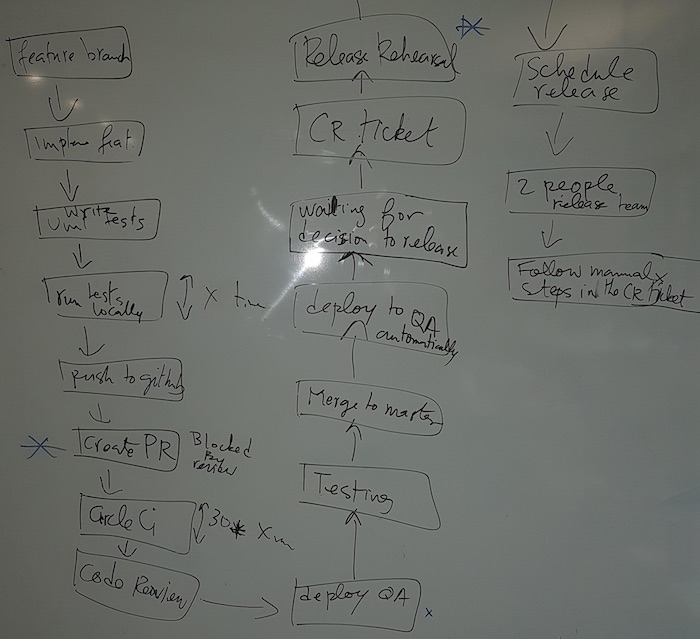 feature branch
Implem feat
write
Unit tests
run tests
locally
X
push to github
Create PR
Blocked
By
review
Circle Ci
30 X
Code Review
deploy QA
x
Testing
Merge to master
deploy to QA
automatically
waiting for
decision to release
CR ticket
Release Rehearsal
Schedule
release
2 people
release team
Follow manual
steps in the CR ticket